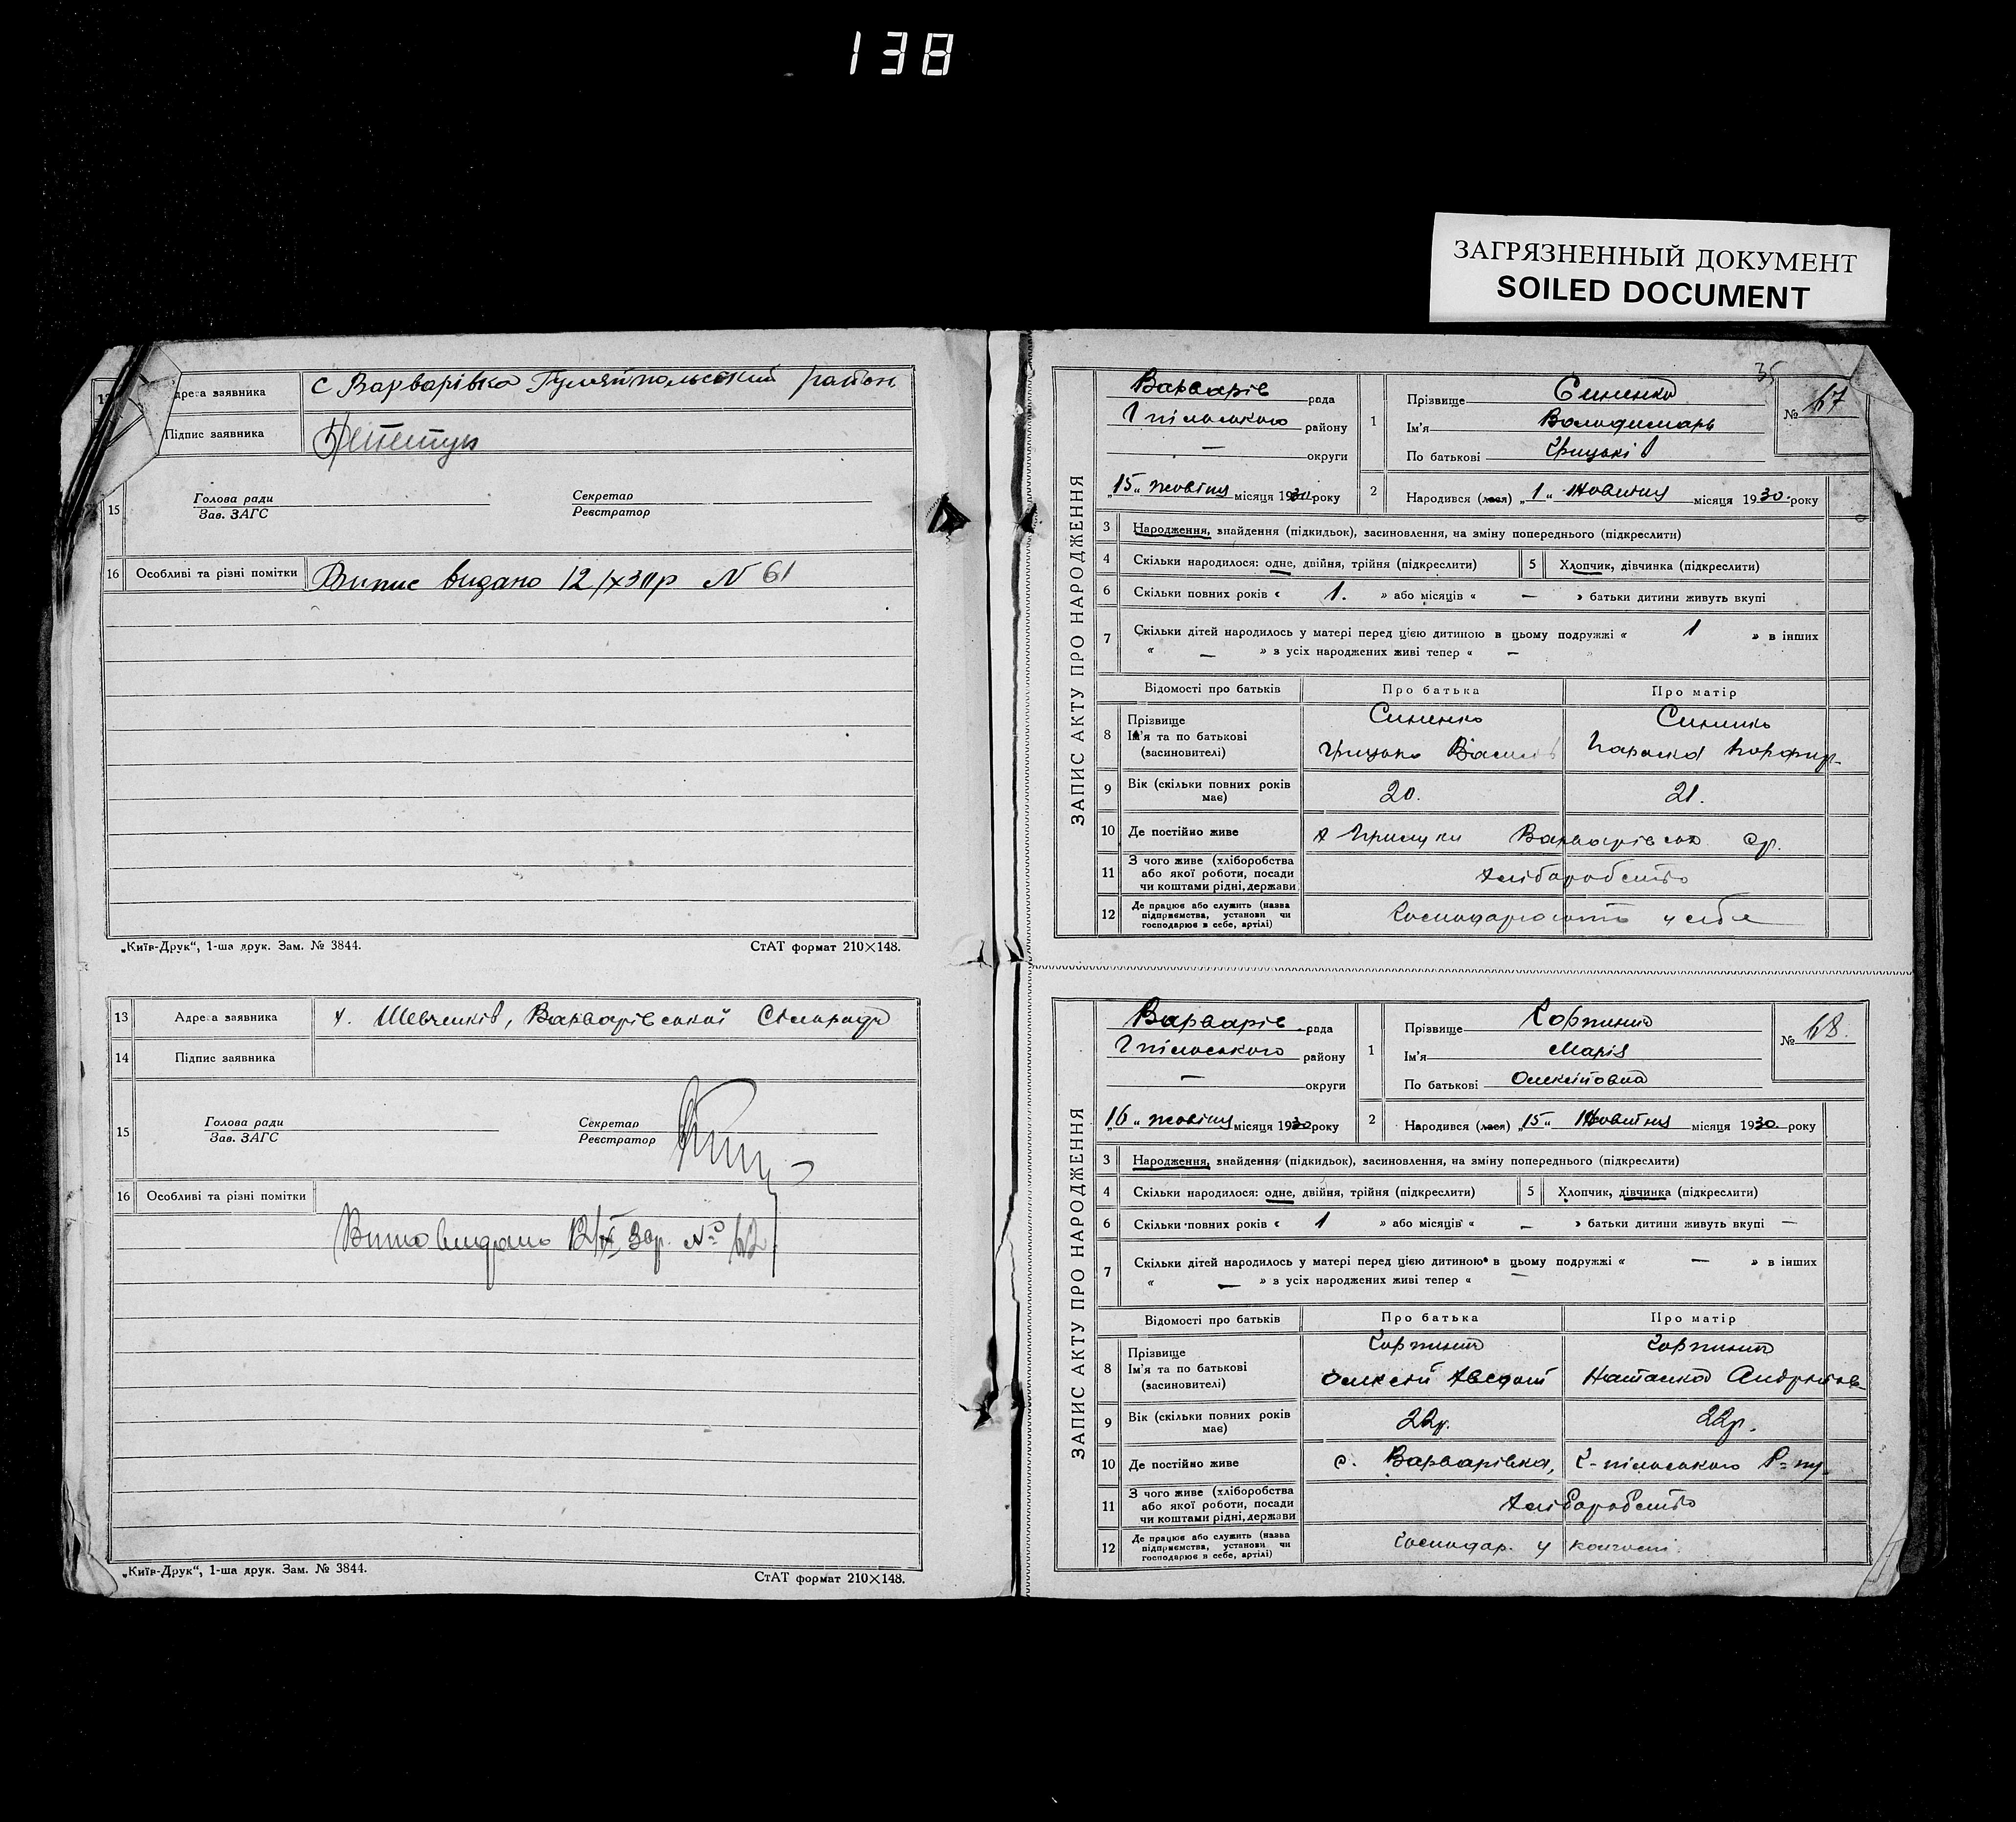 138
ЗАГРЯЗНЕННЫЙ ДОКУМЕНТ
SOILED DOCUMENT
дреса заявника с Варварівка Гуляйпольський район
Підпис заявника
15 Голова ради
Зав. ЗАГС
Секретар
Реєстратор
16 Особливі та різні помітки Випис видано 12/X 30 р N 61
„Київ-Друк“, 1-ша друк. Зам. № 3844.
СтАТ формат 210×148.
13 Адреса заявника х. Шевченків, Варварівської Сільради
14 Підпис заявника
15 Голова ради
Зав. ЗАГС
Секретар
Реєстратор
16 Особливі та різні помітки
видано 12/X 30р. № 62
„Київ-Друк“, 1-ша друк. Зам. № 3844.
СтАТ формат 210×148.
35
ЗАПИС АКТУ ПРО НАРОДЖЕННЯ
Варварів рада
Гпільського району
— округи
„15“ жовтня місяця 1930 року
1 Прізвище Синенко
Ім'я Володимарь
По батькові Грицьків
№ 67
2 Народився (лася) „1“ Жовтня місяця 1930 року
3 Народження, знайдення (підкидьок), засиновлення, на зміну попереднього (підкреслити)
4 Скільки народилося: одне, двійня, трійня (підкреслити)
5 Хлопчик, дівчинка (підкреслити)
6 Скільки повних років « 1. » або місяців « — » батьки дитини живуть вкупі
7 Скільки дітей народилось у матері перед цією дитиною в цьому подружжі « 1 » в інших
« — » в усіх народжених живі тепер « —
Відомості про батьків Про батька Про матір
8 Прізвище Синенко Синенко
Ім'я та по батькові Грицько Василів Параска Порфир-
(засиновителі)
9 Вік (скільки повних років має) 20. 21.
10 Де постійно живе Варварівська Ср.
11 З чого живе (хліборобства або якої роботи, посади чи коштами рідні, держави Хліборобство
12 Де працює або служить (назва підприємства, установи чи господарює в себе, артілі) Господарюють у себе
ЗАПИС АКТУ ПРО НАРОДЖЕННЯ
Варварів рада
Гпільського району
— округи
„16“ жовтня місяця 1930 року
1 Прізвище
Ім'я Марія
По батькові Олексіївна
№ 68.
2 Народився (лася) „15“ Жовтня місяця 1930 року
3 Народження, знайдення (підкидьок), засиновлення, на зміну попереднього (підкреслити)
4 Скільки народилося: одне, двійня, трійня (підкреслити)
5 Хлопчик, дівчинка (підкреслити)
6 Скільки повних років « 1 » або місяців « — » батьки дитини живуть вкупі —
7 Скільки дітей народилось у матері перед цією дитиною в цьому подружжі « — » в інших
« — » в усіх народжених живі тепер « —
Відомості про батьків Про батька Про матір
8 Прізвище
Ім'я та по батькові Олексій Наталка Андріїв
(засиновителі)
9 Вік (скільки повних років має) 22р. 22р.
10 Де постійно живе с. Варварівка, Г-пільського Р-ну
11 З чого живе (хліборобства або якої роботи, посади чи коштами рідні, держави Хліборобство
12 Де працює або служить (назва підприємства, установи чи господарює в себе, артілі) Господар. у